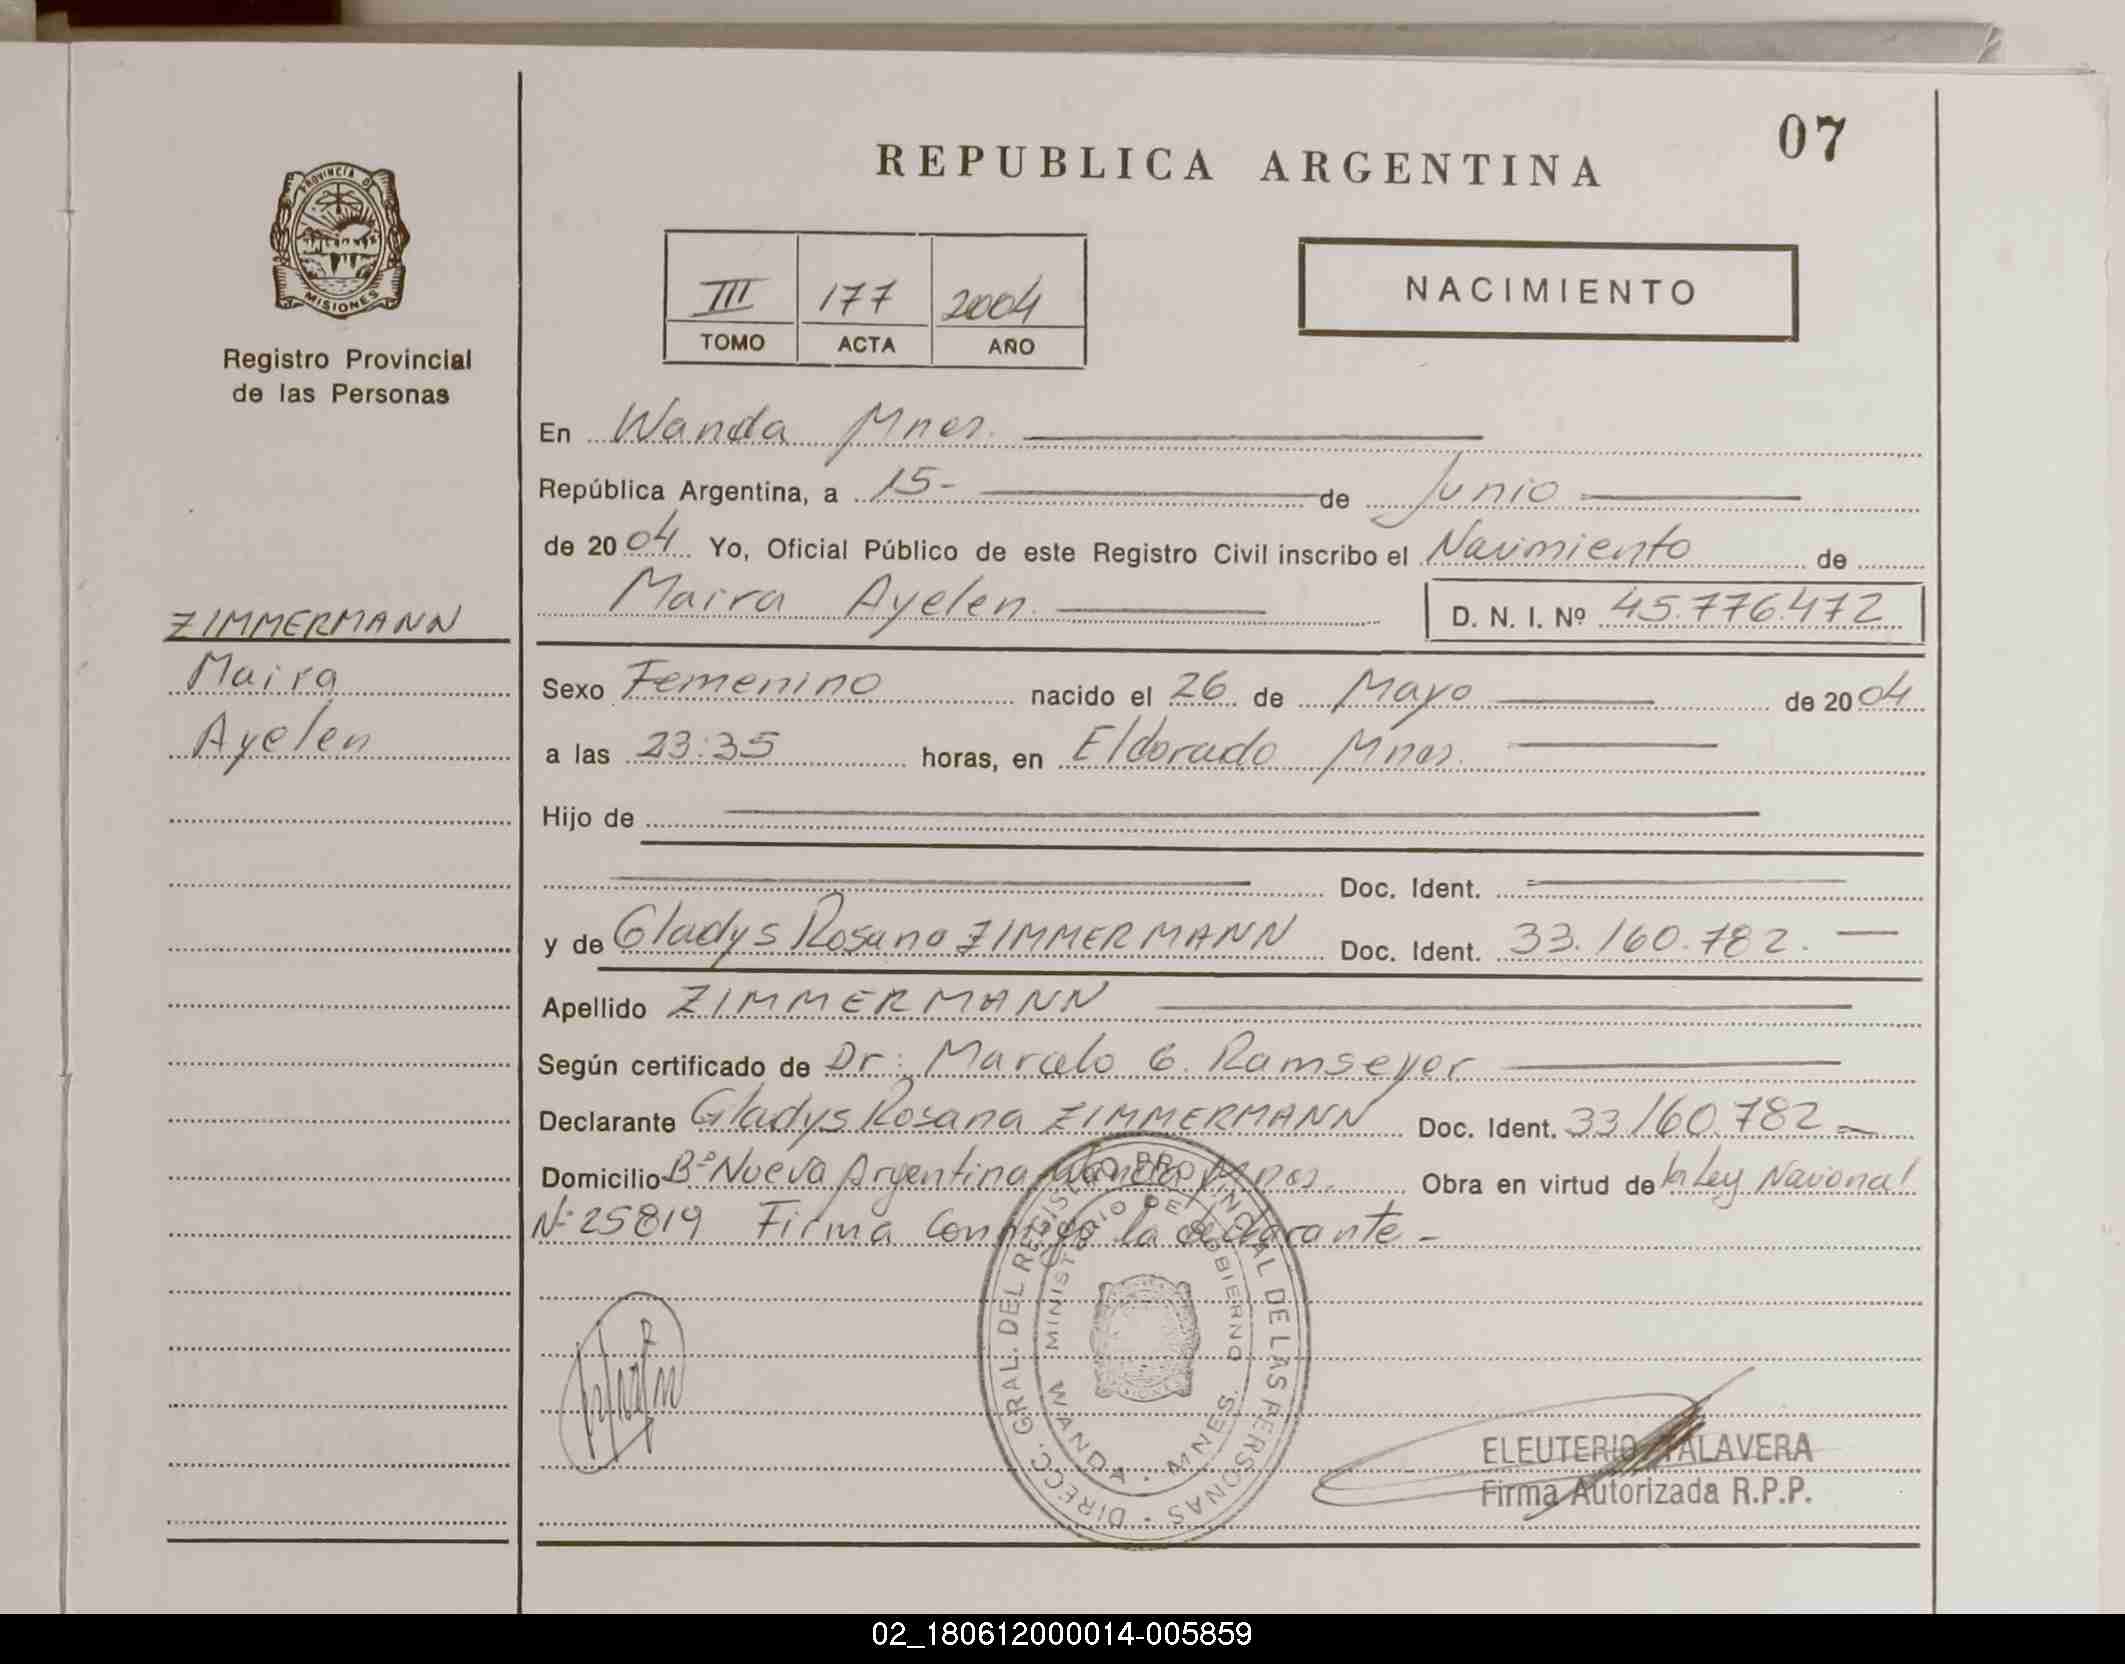 07
REPUBLICA ARGENTINA
PROVINCIA DE
MISIONES
Registro Provincial
de las Personas
III 177 2004
TOMO ACTA AÑO
NACIMIENTO
En Wanda Mnes.
República Argentina, a 15- de Junio
de 2004 Yo, Oficial Público de este Registro Civil inscribo el Nacimiento de
Maira Ayelen D. N. I. Nº 45.776.472
ZIMMERMANN
Maira
Ayelen
Sexo Femenino nacido el 26 de Mayo de 2004
a las 23:35 horas, en Eldorado Mnes.
Hijo de
Doc. Ident.
y de Gladys Rosana ZIMMERMANN Doc. Ident. 33.160.782.
Apellido ZIMMERMANN
Según certificado de Dr: Marcelo G. Ramseyer
Declarante Gladys Rosana ZIMMERMANN Doc. Ident. 33160.782
Domicilio Bº Nueva Argentina Wanda Mnes. Obra en virtud de la Ley Nacional
Nº 25819 Firma conmigo la declarante -
DIRECC. GRAL. DEL REGISTRO PROVINCIAL DE LAS PERSONAS
MINISTERIO DE GOBIERNO
WANDA - MNES.
ELEUTERIO TALAVERA
Firma Autorizada R.P.P.
02_180612000014-005859